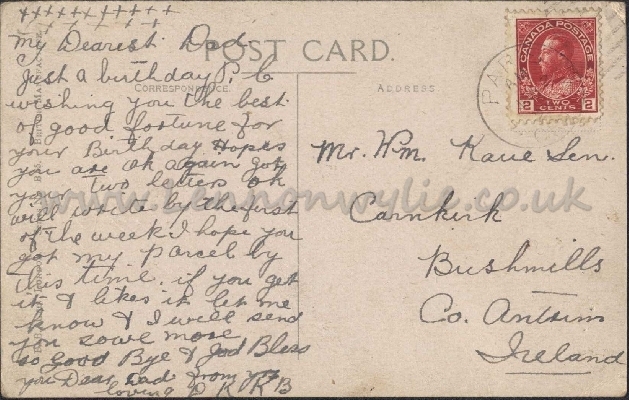 + + + + + + + + + +
+ + + + + + + + +
My Dearest Dad
Just a birthday P. C
wishing you the best
of good fortune for
your Birthday Hopes
you are ok again got
your two letters ok
will write by the first
of the week I hope you
got my parcel by
this time. if you get
it & likes it let me
know & I will send
you some more
so Good Bye & God Bless
you Dear Dad from yr
loving
POST CARD.
CORRESPONDENCE.
ADDRESS
CANADA POSTAGE
2 TWO CENTS 2
PAR
Mr. Wm. Kane Sen.
Carnkirk
Bushmills
Co. Antrim
Ireland
www.lennonwylie.co.uk